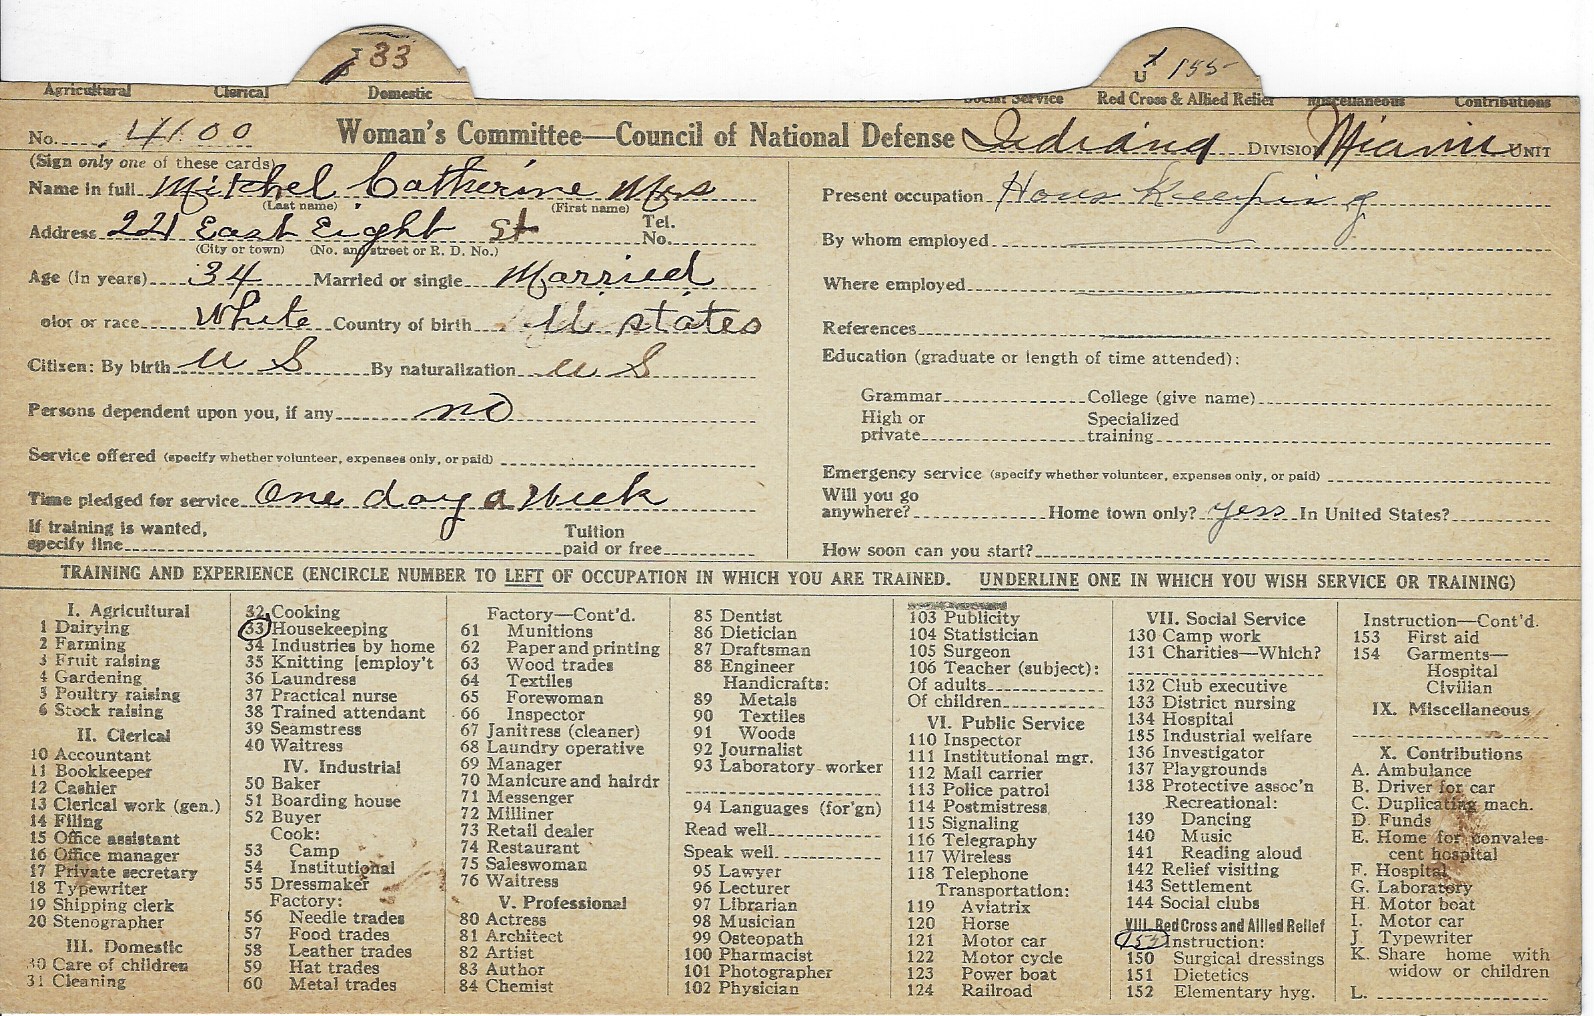 33
U 155
Agricultural Clerical Domestic Social Service Red Cross & Allied Relief Miscellaneous Contributions
No. 4100 Woman's Committee—Council of National Defense Indiana DIVISION Miami UNIT
(Sign only one of these cards)
Name in full Mitchel Catherine Mrs
(Last name) (First name)
Address 221 East Eight St Tel. No.
(City or town) (No. and street or R. D. No.)
Age (in years) 34 Married or single Married
olor or race White Country of birth U states
Citizen: By birth U S By naturalization U S
Persons dependent upon you, if any no
Service offered (specify whether volunteer, expenses only, or paid)
Time pledged for service One day a Week
If training is wanted, specify line Tuition paid or free
Present occupation Hous Keeping
By whom employed
Where employed
References
Education (graduate or length of time attended):
Grammar College (give name)
High or private Specialized training
Emergency service (specify whether volunteer, expenses only, or paid)
Will you go anywhere? Home town only? yess In United States?
How soon can you start?
TRAINING AND EXPERIENCE (ENCIRCLE NUMBER TO LEFT OF OCCUPATION IN WHICH YOU ARE TRAINED. UNDERLINE ONE IN WHICH YOU WISH SERVICE OR TRAINING)
I. Agricultural
1 Dairying
2 Farming
3 Fruit raising
4 Gardening
5 Poultry raising
6 Stock raising
II. Clerical
10 Accountant
11 Bookkeeper
12 Cashier
13 Clerical work (gen.)
14 Filing
15 Office assistant
16 Office manager
17 Private secretary
18 Typewriter
19 Shipping clerk
20 Stenographer
III. Domestic
30 Care of children
31 Cleaning
32 Cooking
33 Housekeeping
34 Industries by home
35 Knitting [employ't
36 Laundress
37 Practical nurse
38 Trained attendant
39 Seamstress
40 Waitress
IV. Industrial
50 Baker
51 Boarding house
52 Buyer
Cook:
53 Camp
54 Institutional
55 Dressmaker
Factory:
56 Needle trades
57 Food trades
58 Leather trades
59 Hat trades
60 Metal trades
Factory—Cont'd.
61 Munitions
62 Paper and printing
63 Wood trades
64 Textiles
65 Forewoman
66 Inspector
67 Janitress (cleaner)
68 Laundry operative
69 Manager
70 Manicure and hairdr
71 Messenger
72 Milliner
73 Retail dealer
74 Restaurant
75 Saleswoman
76 Waitress
V. Professional
80 Actress
81 Architect
82 Artist
83 Author
84 Chemist
85 Dentist
86 Dietician
87 Draftsman
88 Engineer
Handicrafts:
89 Metals
90 Textiles
91 Woods
92 Journalist
93 Laboratory worker
94 Languages (for'gn)
Read well
Speak well
95 Lawyer
96 Lecturer
97 Librarian
98 Musician
99 Osteopath
100 Pharmacist
101 Photographer
102 Physician
103 Publicity
104 Statistician
105 Surgeon
106 Teacher (subject):
Of adults
Of children
VI. Public Service
110 Inspector
111 Institutional mgr.
112 Mail carrier
113 Police patrol
114 Postmistress
115 Signaling
116 Telegraphy
117 Wireless
118 Telephone
Transportation:
119 Aviatrix
120 Horse
121 Motor car
122 Motor cycle
123 Power boat
124 Railroad
VII. Social Service
130 Camp work
131 Charities—Which?
132 Club executive
133 District nursing
134 Hospital
135 Industrial welfare
136 Investigator
137 Playgrounds
138 Protective assoc'n
Recreational:
139 Dancing
140 Music
141 Reading aloud
142 Relief visiting
143 Settlement
144 Social clubs
VIII. Red Cross and Allied Relief
155 Instruction:
150 Surgical dressings
151 Dietetics
152 Elementary hyg.
Instruction—Cont'd.
153 First aid
154 Garments—
Hospital
Civilian
IX. Miscellaneous
X. Contributions
A. Ambulance
B. Driver for car
C. Duplicating mach.
D. Funds
E. Home for convales-
cent hospital
F. Hospital
G. Laboratory
H. Motor boat
I. Motor car
J Typewriter
K. Share home with
widow or children
L.